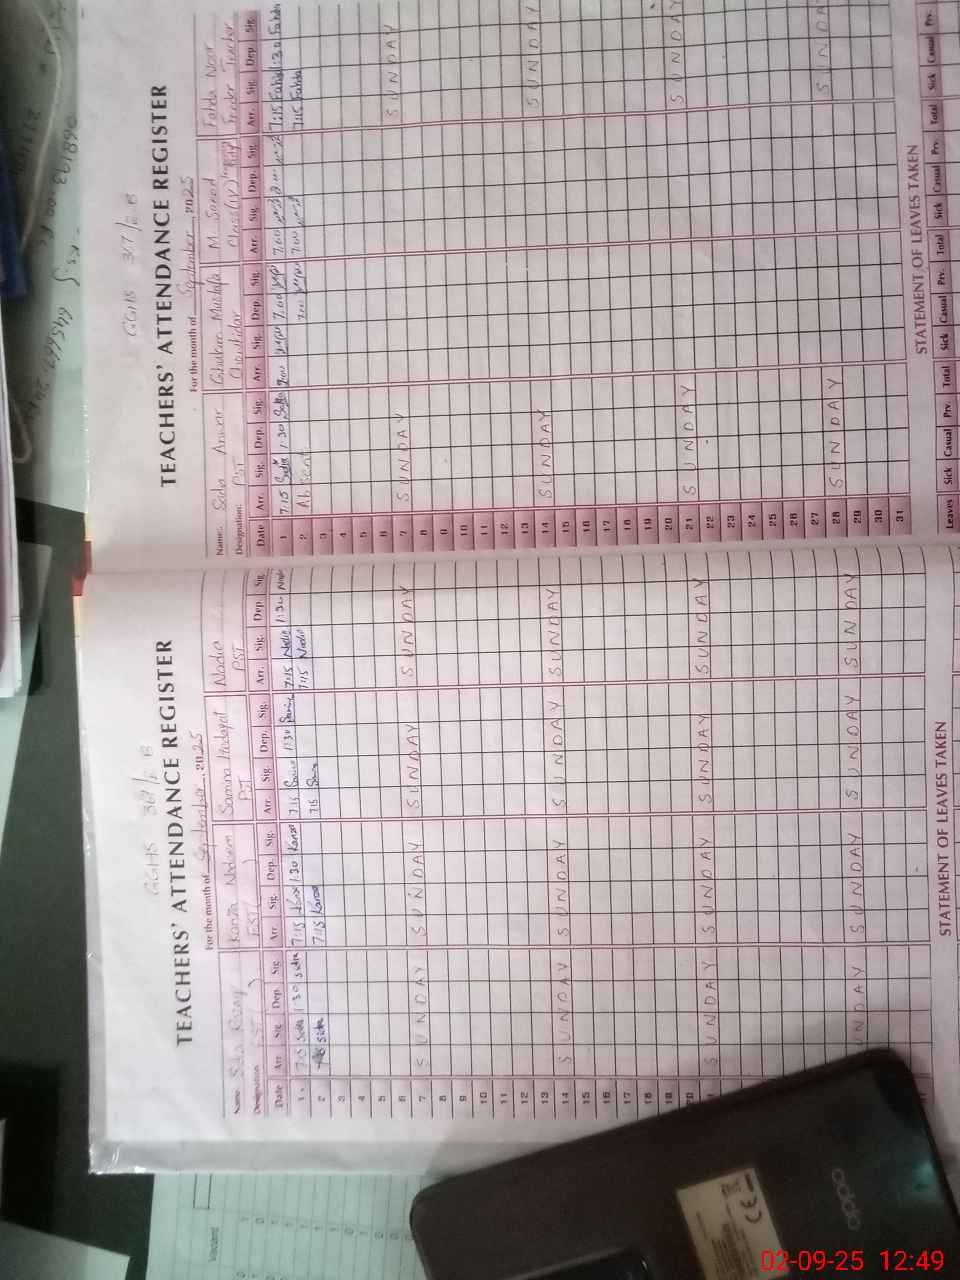 GGHS 367/E B
TEACHERS' ATTENDANCE REGISTER
For the month of September, 2025
Name: Sidra Kanza Nadeem Samina Hadayat Nadia
Designation EST ( ) EST ( ) PST PST
Date Arr. Sig. Dep. Sig. Arr. Sig. Dep. Sig. Arr. Sig. Dep. Sig. Arr. Sig. Dep. Sig.
1 7:15 Sidra 1:30 Sidra 7:15 Kanza 1:30 Kanza 7:15 Samina 1:30 Samina 7:15 Nadia 1:30 Nadia
2 7:15 Sidra 7:15 Kanza 7:15 7:15 Nadia
3
4
5
6
7 SUNDAY SUNDAY SUNDAY SUNDAY
8
9
10
11
12
13
14 SUNDAY SUNDAY SUNDAY SUNDAY
15
16
17
18
19
20
SUNDAY SUNDAY SUNDAY SUNDAY
SUNDAY SUNDAY SUNDAY SUNDAY
STATEMENT OF LEAVES TAKEN
GGHS 367/E B
TEACHERS' ATTENDANCE REGISTER
For the month of September, 2025
Name: Sadia Anwar Ghulam Mustafa M. Saeed Fahda Noor
Designation: PST Chowkidar Class (IV) Feeder Teacher
Date Arr. Sig. Dep. Sig. Arr. Sig. Dep. Sig. Arr. Sig. Dep. Sig. Arr. Sig. Dep. Sig.
1 7:15 Sadia 1:30 Sadia 7:00 7:00 7:00 7:15 Fahda 1:30 Fahda
2 Absent 7:00 7:00 7:15 Fahda
3
4
5
6
7 SUNDAY SUNDAY
8
9
10
11
12
13
14 SUNDAY SUNDAY
15
16
17
18
19
20
21 SUNDAY SUNDAY
22
23
24
25
26
27
28 SUNDAY SUNDAY
29
30
31
STATEMENT OF LEAVES TAKEN
Leaves Sick Casual Prv. Total Sick Casual Prv. Total Sick Casual Prv. Total Sick Casual Prv.
Vacant
oppo
CE
02-09-25 12:49